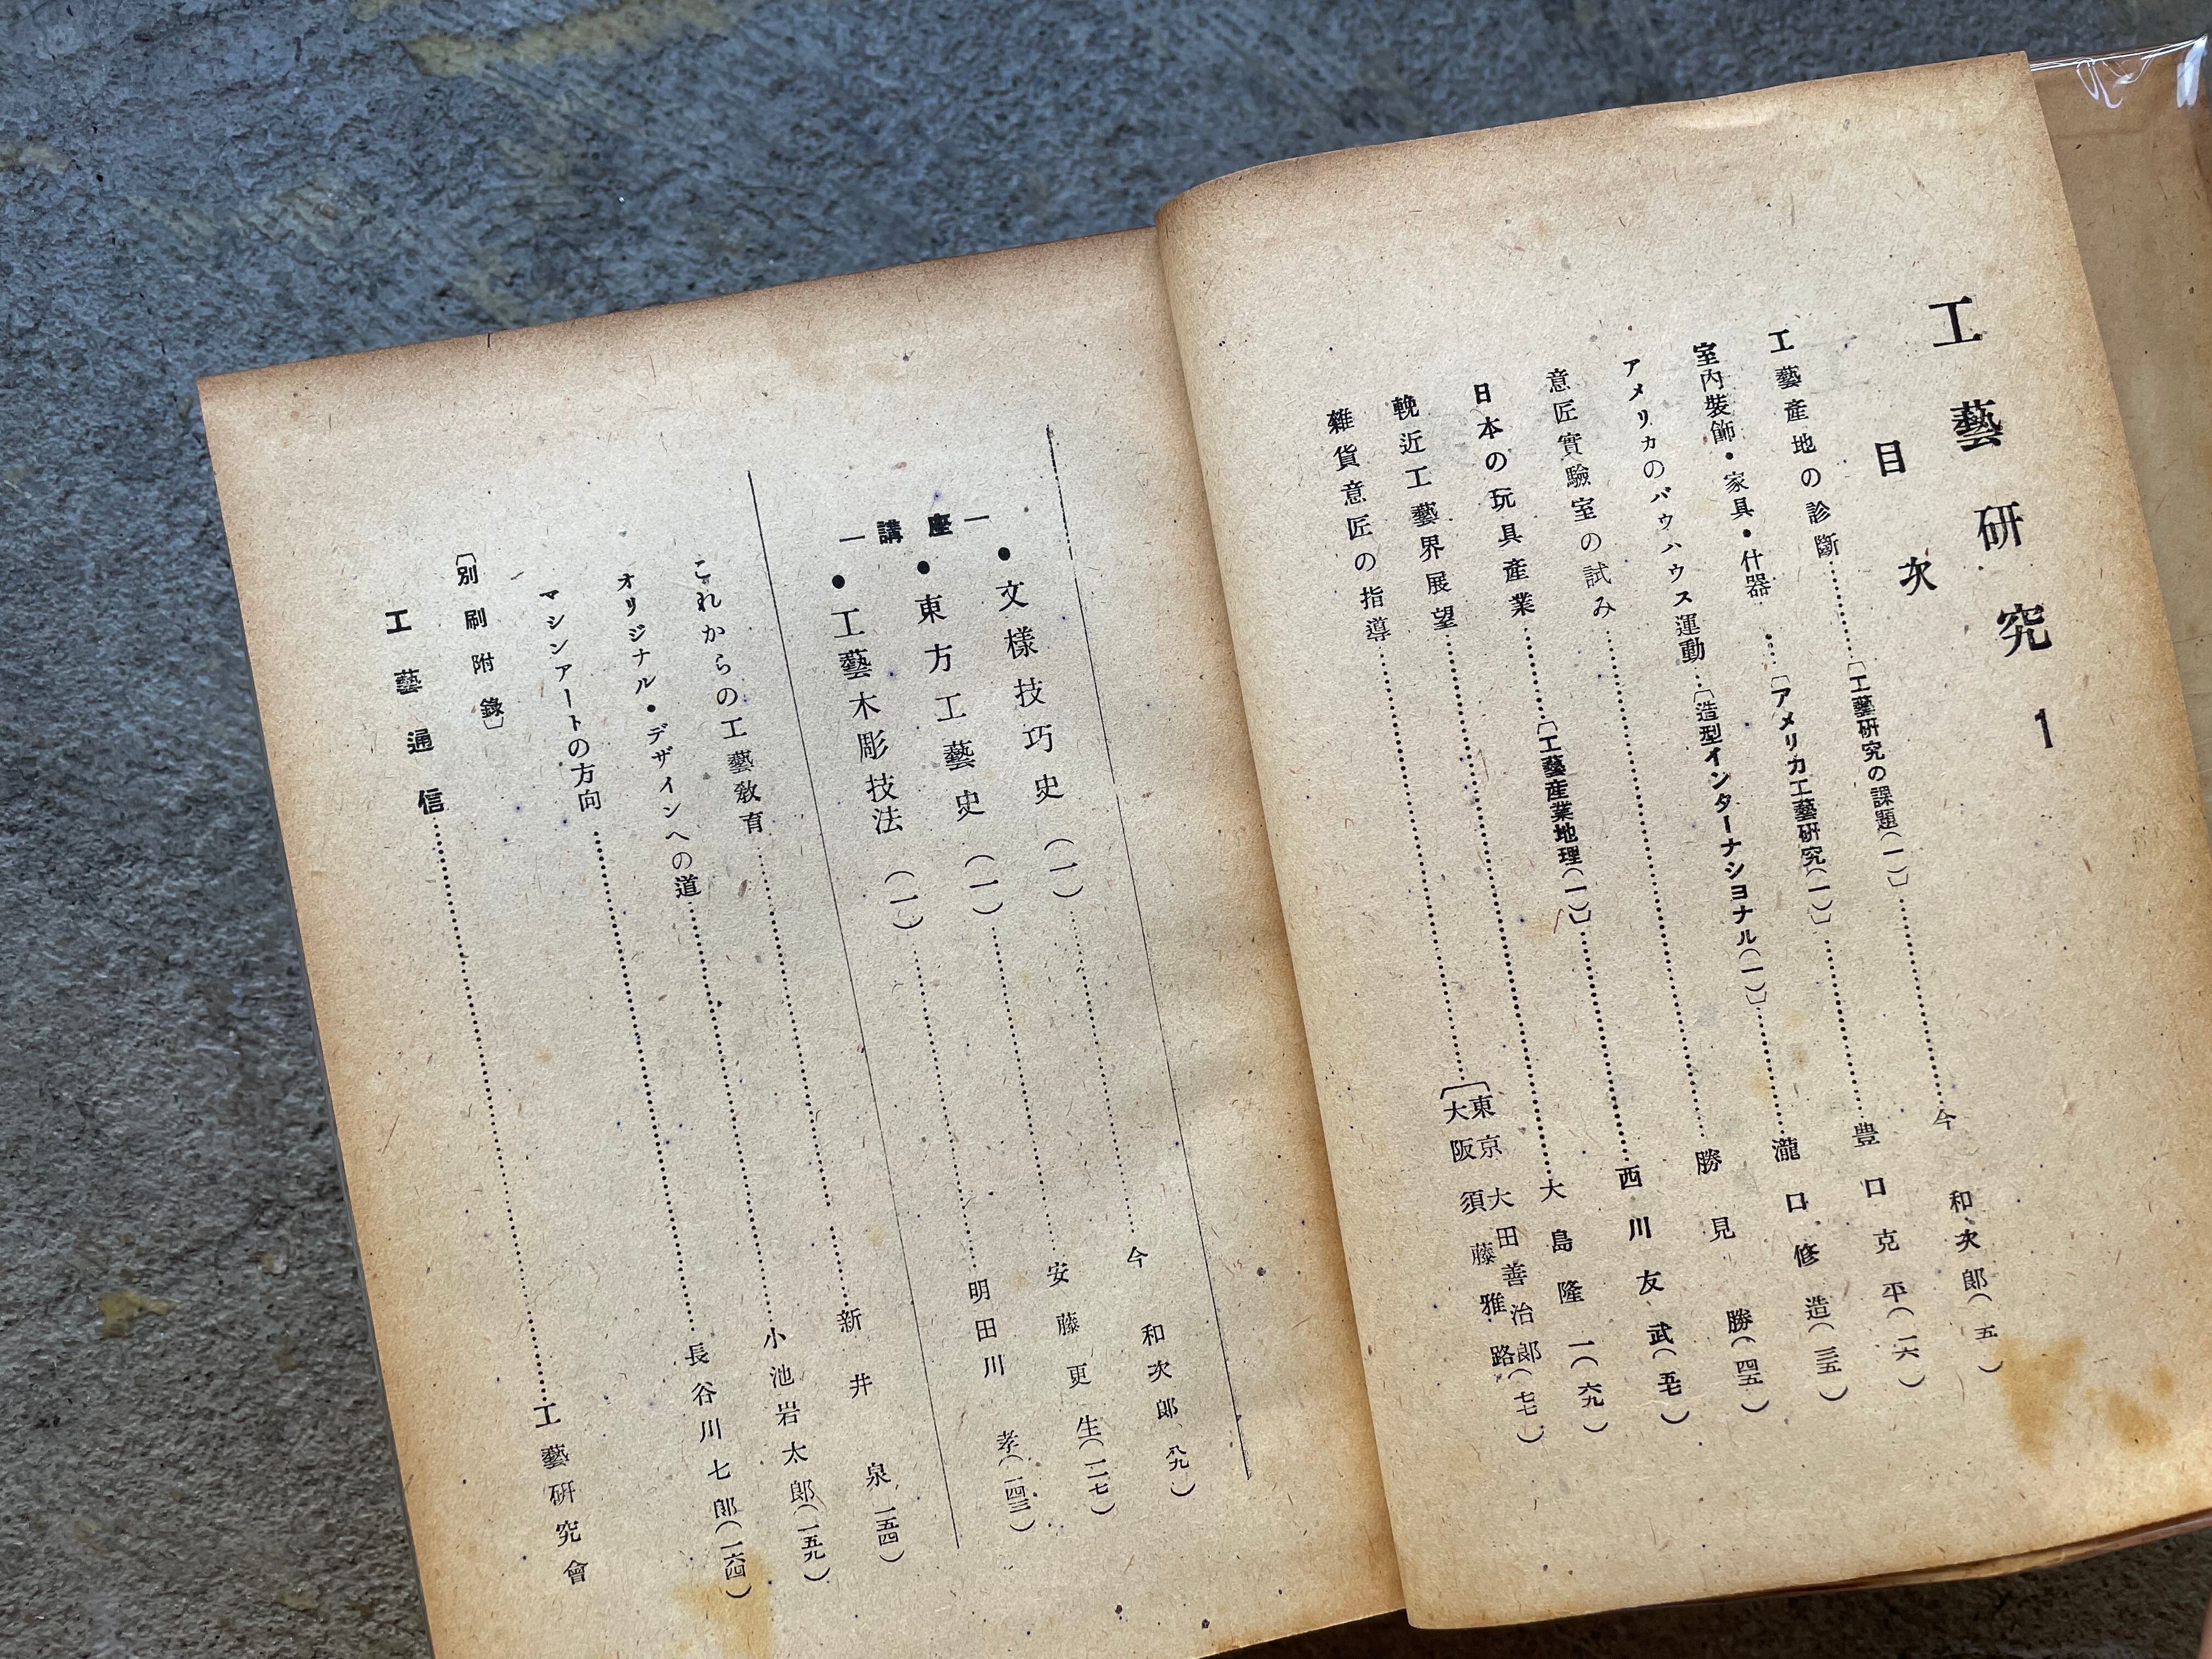 工藝研究 1
目次
工藝産地の診斷……〔工藝研究の課題(一)〕……今 和次郎(五)
室内裝飾・家具・什器……〔アメリカ工藝研究(一)〕……豊口克平(一六)
アメリカのバウハウス運動…〔造型インターナショナル(一)〕……瀧口修造(三五)
意匠實驗室の試み……勝見 勝(四五)
日本の玩具産業……〔工藝産業地理(一)〕……西川友武(五七)
輓近工藝界展望……大島隆一(六九)
雜貨意匠の指導……〔東京 大田善治郎
大阪 須藤雅路(七七)
―講座―
●文樣技巧史(一)……今 和次郎(八九)
●東方工藝史(一)……安藤更生(一一七)
●工藝木彫技法(一)……明田川 孝(一四三)
これからの工藝敎育……新井 泉(一五四)
オリジナル・デザインへの道……小池岩太郎(一五九)
マシンアートの方向……長谷川七郎(一六四)
〔別刷附錄〕
工藝通信……工藝研究會